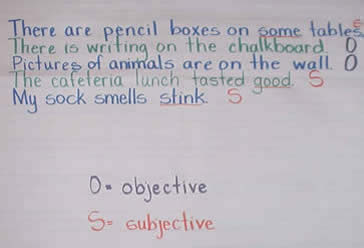 There are pencil boxes on some tables. S
There is writing on the chalkboard. O
Pictures of animals are on the wall. O
The cafeteria lunch tasted good. S
My sock smells stink. S
O= objective
S= subjective